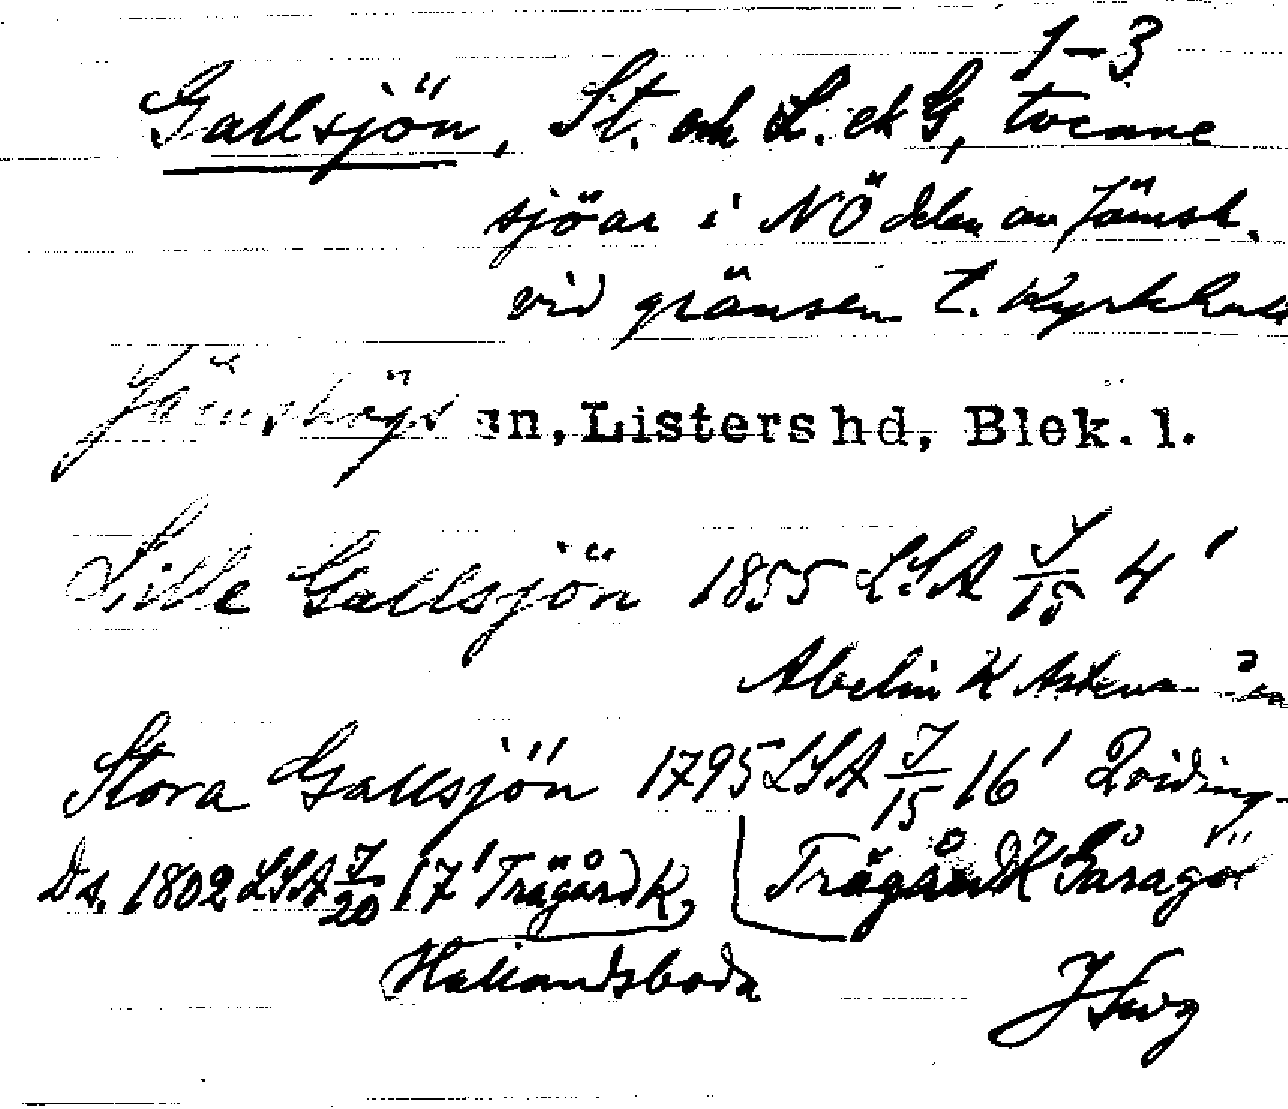 1–3
Gallsjön, St. och L. el G, tvenne
sjöar i NÖ delen av Jämsh.
vid gränsen t. Kyrkhult
Jämshögs sn, Listers hd, Blek. l.
Lille Gallsjön 1855 LSA J/15 4'
Abelin K
Stora Gallsjön 1795 LSA J/15 16' Qviding
Ds. 1802 LSA J/20 17' Trägård K, Trägård K Gåragöl
Hallandsboda